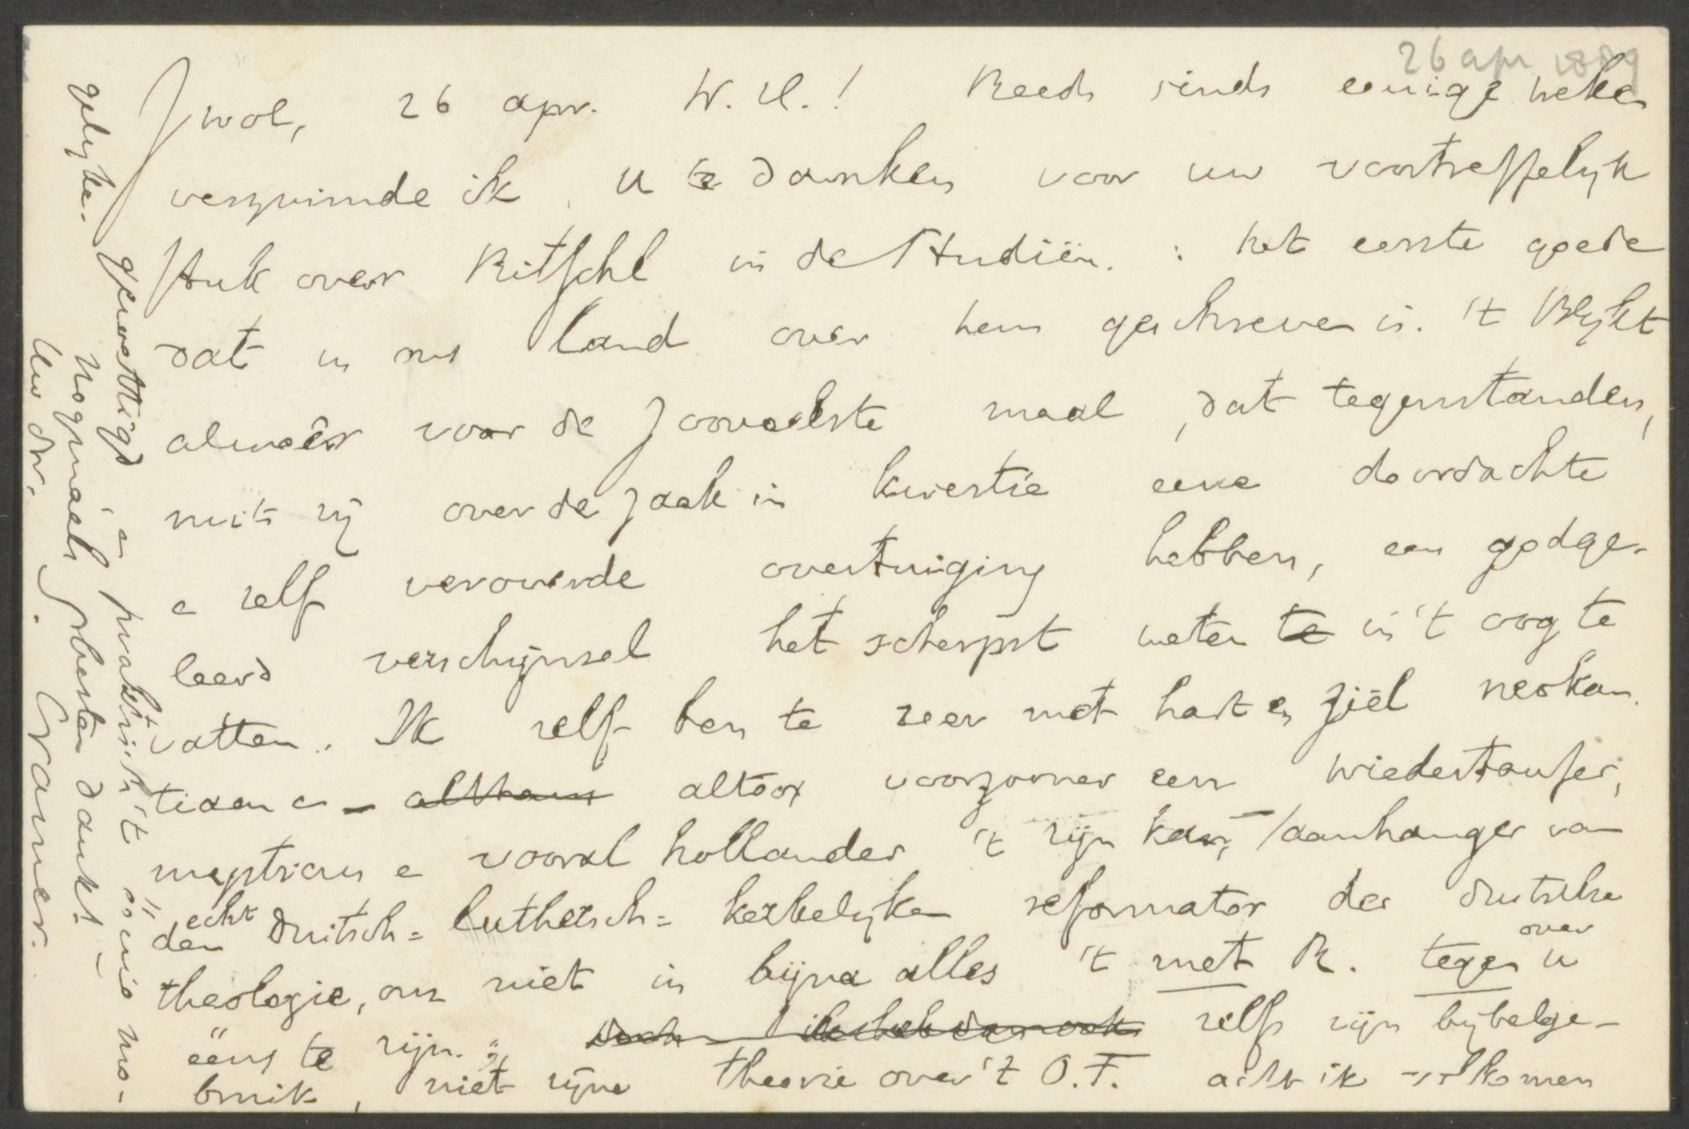 26 apr 1889
Zwol, 26 apr. W. H.! Reeds sinds eenige weken
verzuimde ik u te danken voor uw voortreffelijk
stuk over Ritschl in de Studiën. : het eerste goede
dat in ons land over hem geschreven is. 't Blijkt
alweêr voor de zooveelste maal, dat tegenstanders,
mits zij over de zaak in kwestie eene doordachte
e zelf veroverde overtuiging hebben, een godge-
leerd verschijnsel het scherpst weten te in 't oog te
vatten. Ik zelf ben te zeer met hart en ziel neokan-
tiaan en altoos voorzoover een wiedertaufer,
e vooral hollander 't zijn kan, aanhanger van
den echt duitsch= luthersch= kerkelijken reformator der duitsche
theologie, om niet in bijna alles 't met R. tegenover u
eens te zijn. zelfs zijn bijbelge-
bruik, niet zijne theorie over 't O.T. acht ik volkomen
gerechtigd, en praktisch 't oecumo-
gelijke.
Nogmaals besten dank!
Uw dw.
Cramer.